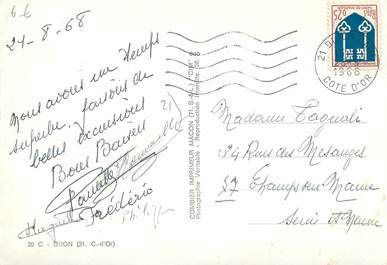 6-6
24-8-68
Nous avons un temps
superbe. faisons de
belles excursions
Bons Baisers
Paulette
Huguette
Frédéric
Philippe
20 C - DIJON (21. C.-d'Or)
COMBIER IMPRIMEUR MACON (71. S.-&-L.) "CIM"
Photographie Véritable - Reproduction Interdite
0,25
21 DIJON
1968
COTE D'OR
Madame Pagnali
34 Rue des Mesanges
77 Champs sur Marne
Seine et Marne